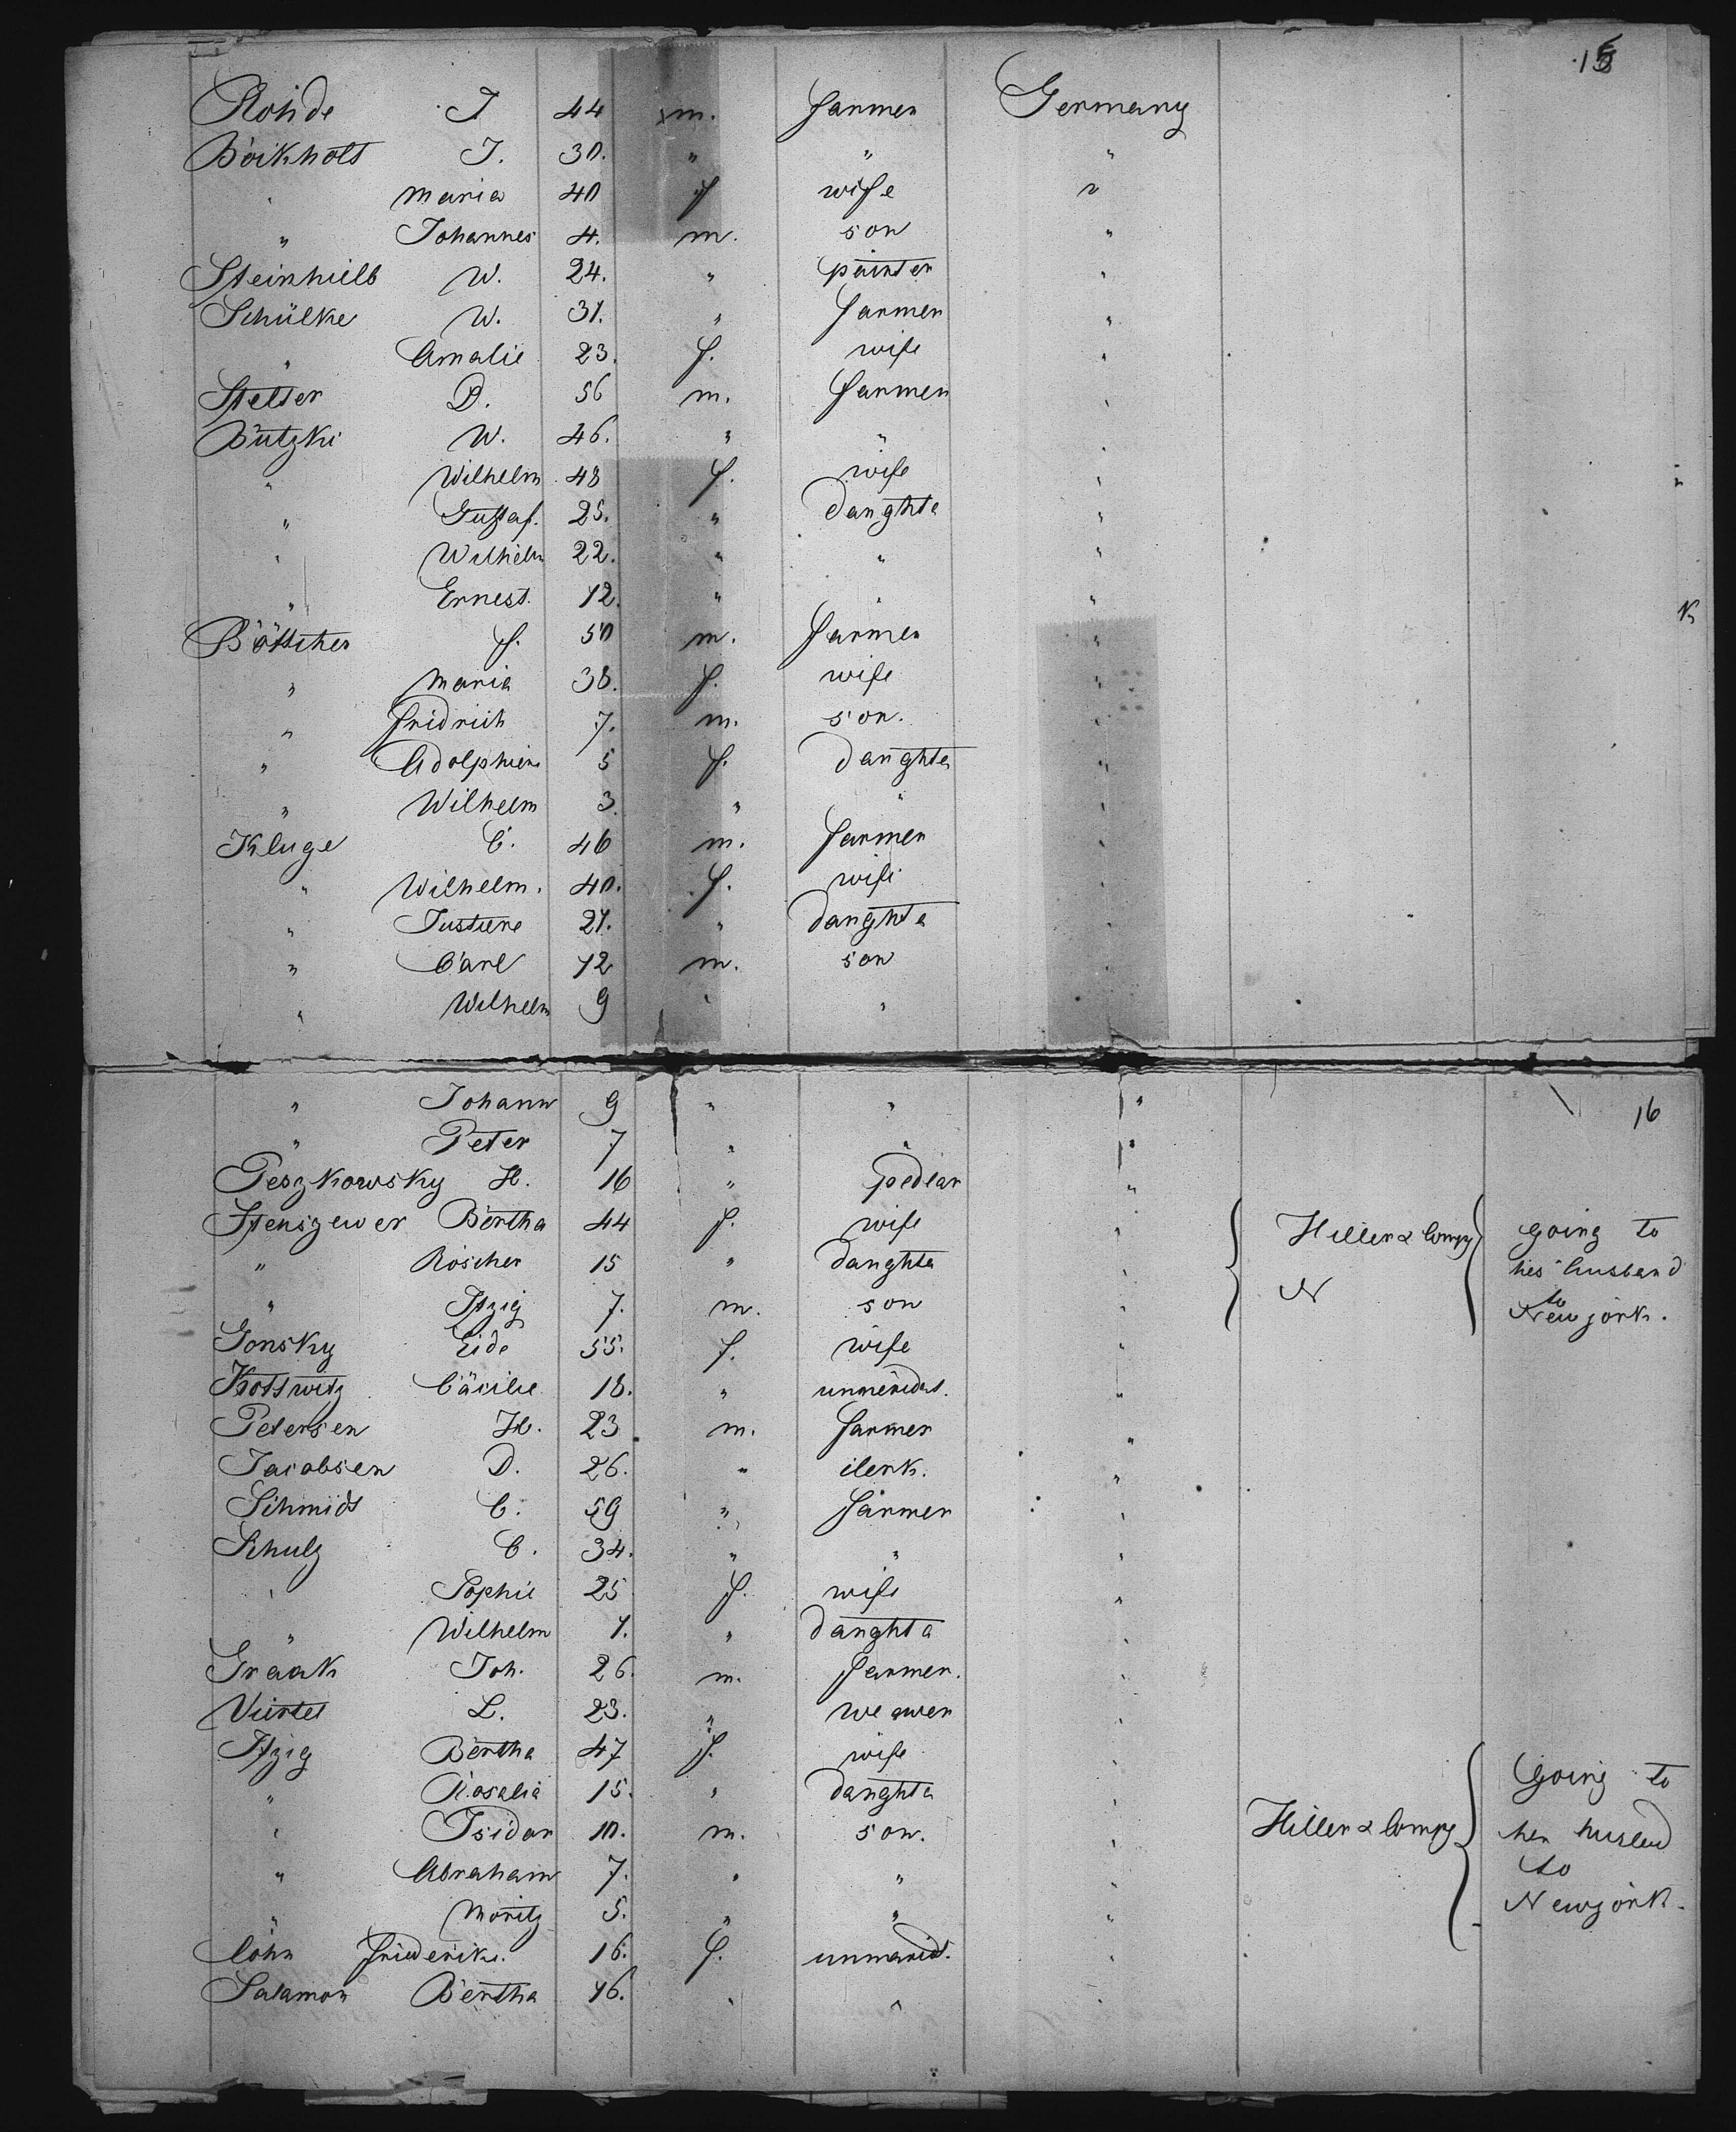 15
Rohde J 44 m. farmer Germany
Böikholt J. 30. " " "
" Maria 40 f wife "
" Johannes 4. m. son "
Steinhielb W. 24. " painter "
Schülke W. 31. " farmer "
" Amalie 23. f. wife "
Stelter D. 56 m. farmer "
Butzki W. 46. " " "
" Wilhelm 48 f. wife "
" Gustaf. 25. " daughte "
" Wilhelm 22. " " "
" Ernest. 12. " " "
Böttcher f. 50 m. farmer "
" Maria 38. f. wife "
" Fridrich 7. m. son. "
" Adolphine 5 f. daughter "
" Wilhelm 3. " " "
Kluge C. 46 m. farmer "
" Wilhelm. 40. f. wife "
" Justiene 21. " daughte "
" Carl 12 m. son "
" Wilhelm 9 " "
16
" Johann 9 " " "
" Peter 7 " " "
Peszkowsky H. 16 " pedlar "
Stenszewer Bertha 44 f. wife " Hiller & Compy going to
" Röschen 15 " daughte " hes husband
" Itzig 7. m. son " N to Newjork.
Gonsky Eide 55. f. wife "
Kottwitz Cäcilie 18. " "
Petersen H. 23 m. farmer "
Jacobsen D. 26. " clerk. "
Schmidt C. 59 " farmer "
Schulz C. 34. " " "
" Sophie 25 f. wife "
" Wilhelm 1. " daughta "
Graak Joh. 26. m. farmer. "
Viertel L. 23. " weawer "
Itzig Bertha 47 f. wife " Going to
" Rosalia 15. " daughta "
" Isidor 10. m. son. " Hiller & Compy her husbend
" Abraham 7. " " " to
" Moritz 5. " " " Newjork.
Cohn Friederike. 16. f. unmarid. "
Salamon Bertha 16. " " "